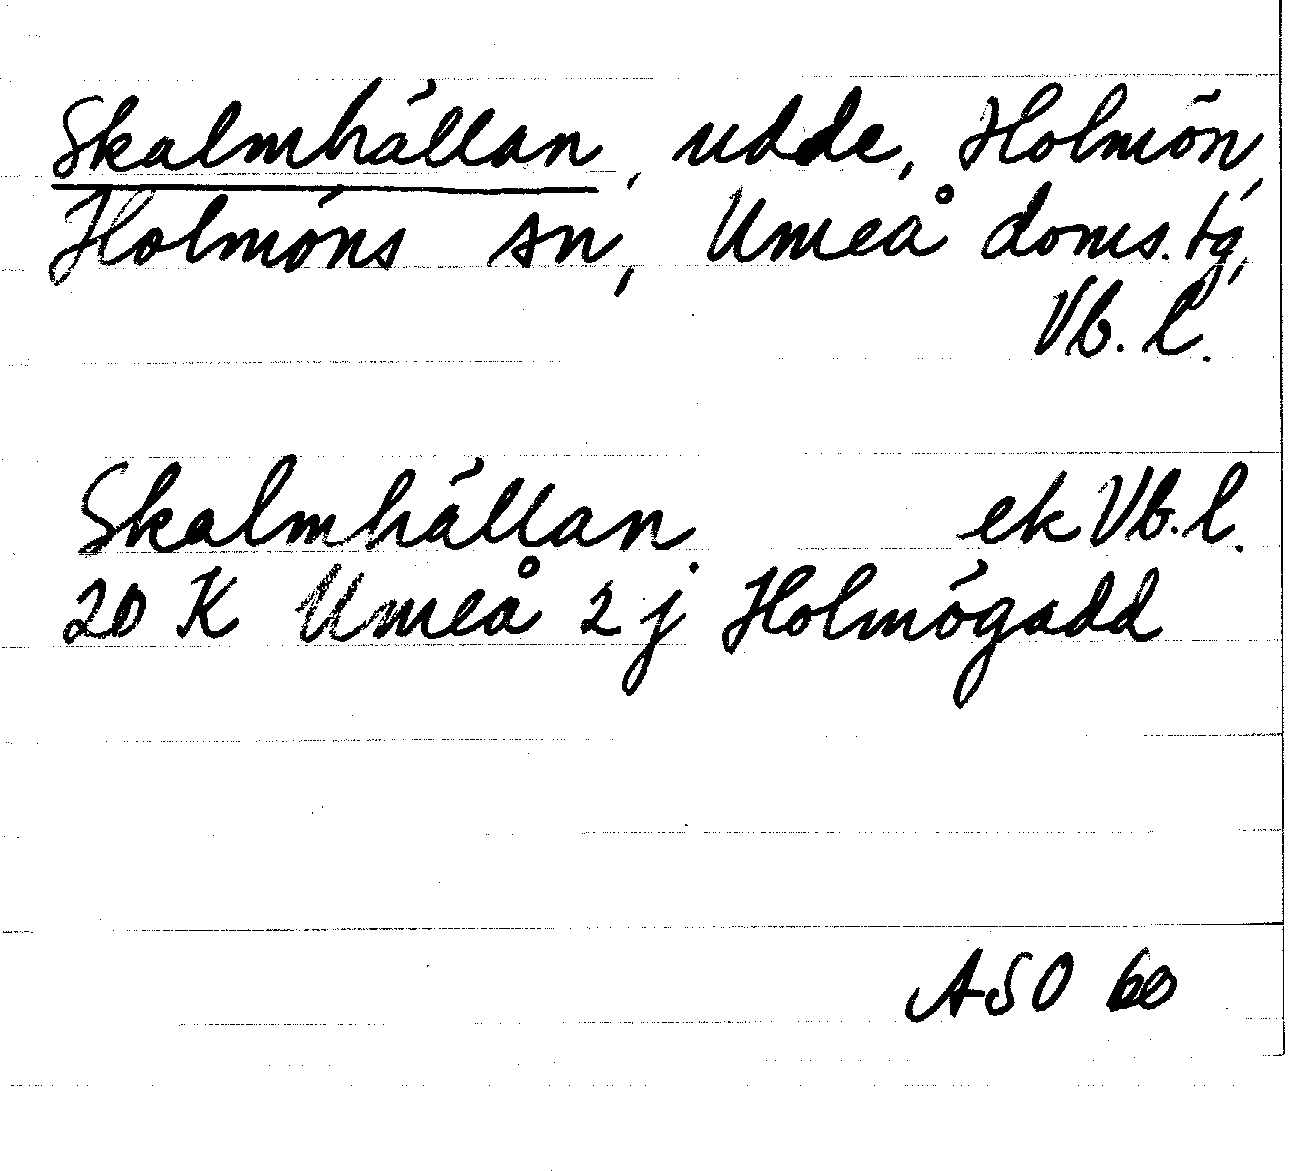 Skalmhällan, udde, Holmön,
Holmöns sn, Umeå doms.tg,
Vb. l.
Skalmhällan. ek Vb. l.
20 K Umeå 2 j Holmögadd
ASO 60